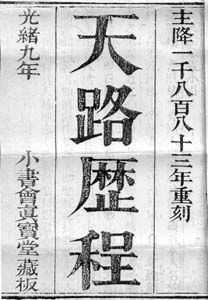 主降一千八百八十三年重刻
天路歷程
光緒九年
小書會真寶堂藏板